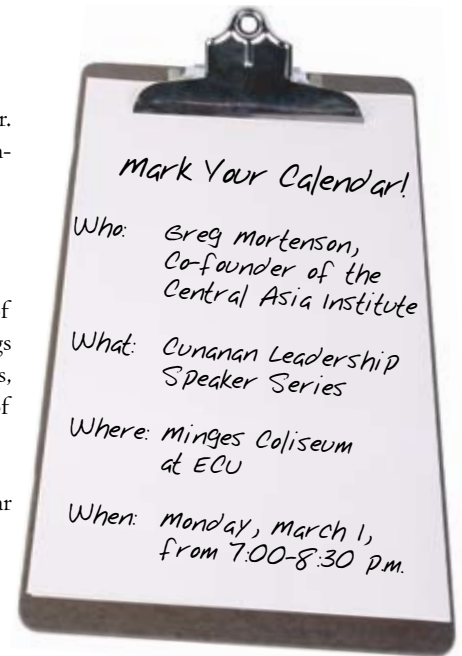 r.
n-
f
gs
s,
of
ar
Mark Your Calendar!
Who: Greg Mortenson,
Co-founder of the
Central Asia Institute
What: Cunanan Leadership
Speaker Series
Where: Minges Coliseum
at ECU
When: Monday, March 1,
from 7:00-8:30 p.m.